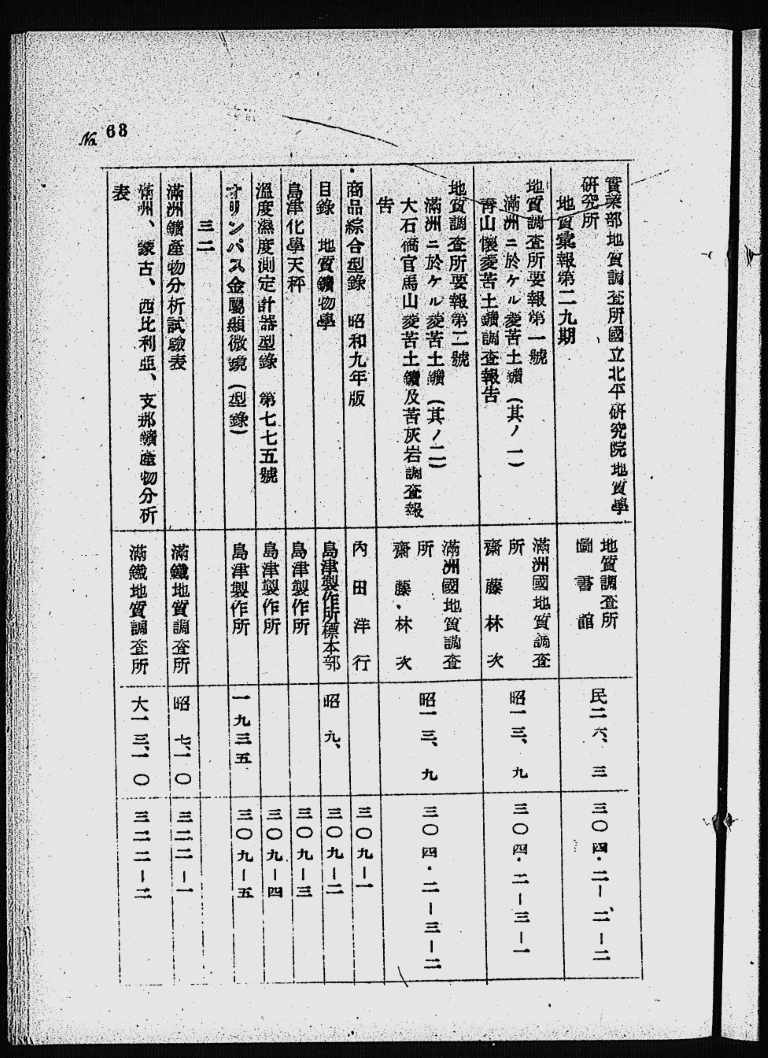 No. 68
實業部地質調査所國立北平研究院地質學
研究所
地質彙報第二九期
地質調査所
圖書館
民二六、三
三〇四・二—二—二
地質調査所要報第一號
滿洲ニ於ケル菱苦土鑛（其ノ一）
青山懷菱苦土鑛調査報告
滿洲國地質調査
所
齋藤林次
昭一三、九
三〇四・二—三—一
地質調査所要報第二號
滿洲ニ於ケル菱苦土鑛（其ノ二）
大石橋官馬山菱苦土鑛及苦灰岩調査報
告
滿洲國地質調査
所
齋藤林次
昭一三、九
三〇四・二—三—二
商品綜合型錄　昭和九年版
內田洋行
三〇九—一
目錄　地質鑛物學
島津製作所標本部
昭九、
三〇九—二
島津化學天秤
島津製作所
三〇九—三
溫度濕度測定計器型錄　第七七五號
島津製作所
三〇九—四
オリンパス金屬顯微鏡（型錄）
島津製作所
一九三五
三〇九—五
三二
滿洲鑛產物分析試驗表
滿鐵地質調査所
昭七、一〇
三二二—一
滿洲、蒙古、西比利亞、支那鑛產物分析
表
滿鐵地質調査所
大一三、一〇
三二二—二